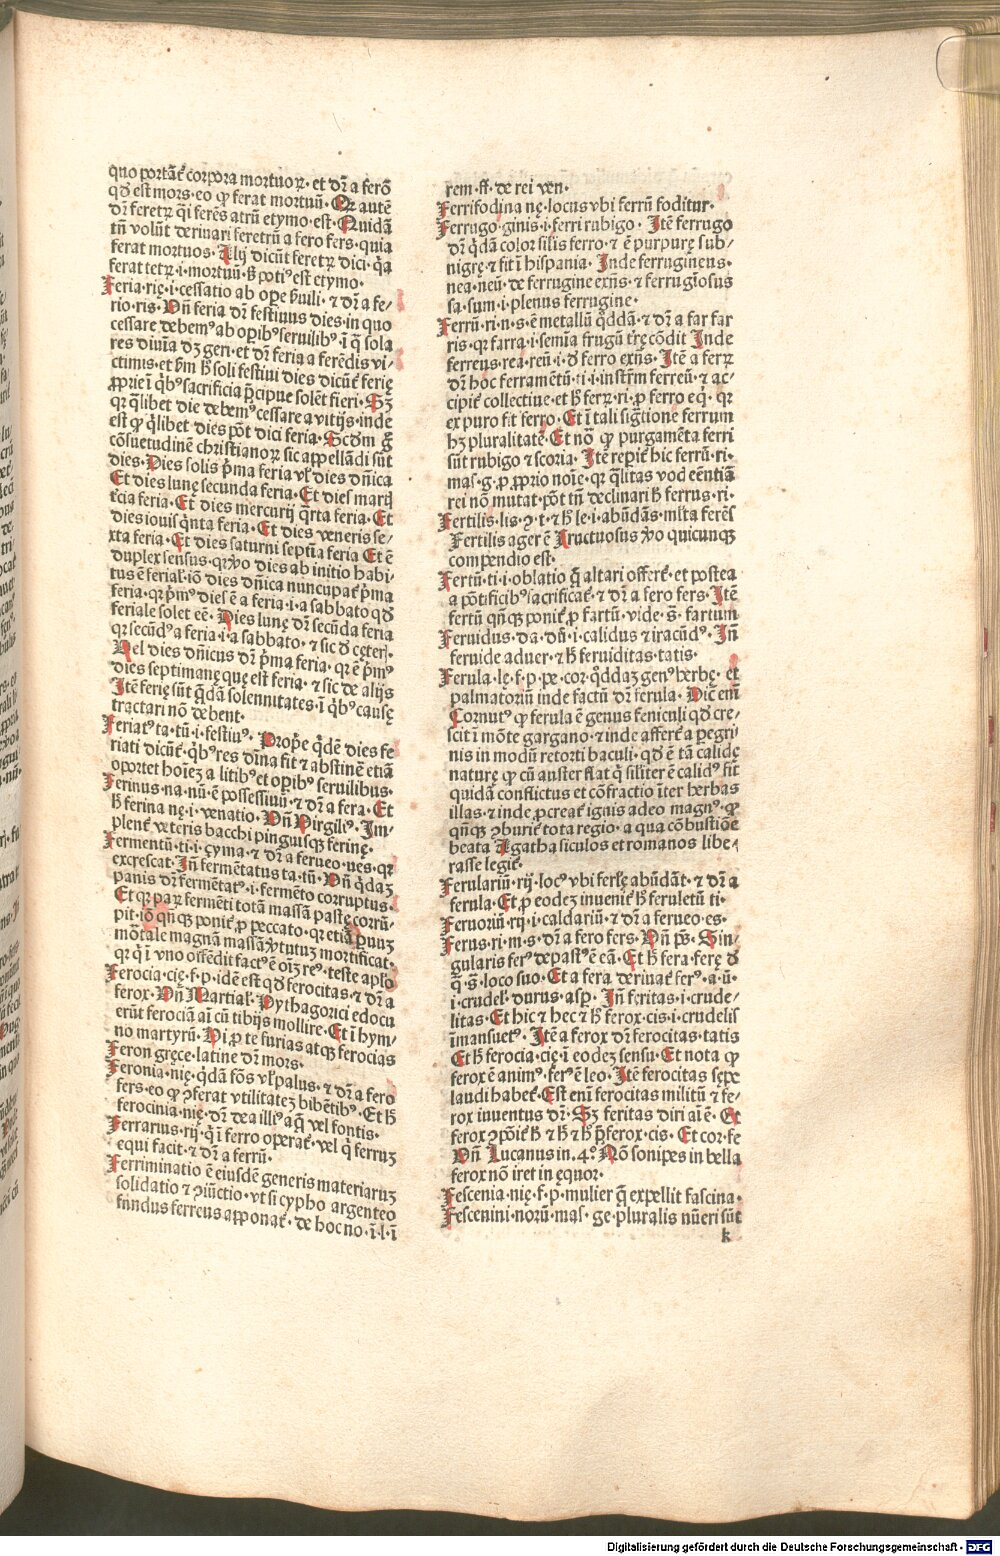 quo portāt᷑ corpora mortuoꝝ· et dr̄ a ferō
qđ est mors· eo ꝙ ferat mortuū· Qꝛ autē
dr̄ feretꝝ qi ferēs atrū etymo· est· Quidā
tn̄ volūt deriuari feretrū a fero fers· quia
ferat mortuos· Alij dicūt feretꝝ dici· q̄a
ferat tetꝝ·i·mortuū· sꝫ poti⁹ est etymo·
Feria·rię·i·cessatio ab oꝑe ẜuili· ⁊ dr̄ a fe/
rio·ris· Vn̄ feria dr̄ festiuus dies· in quo
cessare debem⁹ ab oꝑib⁹ seruilib⁹·ī q̄ sola
res diuīa dꝫ geri· et dr̄ feria a feredīs vi/
ctimis· et ẜm ħ soli festiui dies dicūt᷑ ferię
ꝓprie·ī qͥb⁹ sacrificia p̄cipue solēt fieri· Sꝫ
qꝛ q̄libet die debem⁹ cessare a vitijs· inde
est ꝙ q̄libet dies pōt dici feria· Scd̄m g̊
cōsuetudinē christianoꝝ sic appellādi sūt
dies· Dies solis p̄ma feria vł dies dn̄ica
Et dies lunę secunda feria· Et dies marij
t̄cia feria· Et dies mercurij q̄rta feria· Et
dies iouis q̄nta feria· Et dies veneris se/
xta feria· Et dies saturni septīa feria Et ē
duplex sensus· qꝛ v̊o dies ab initio habi/
tus ē ferial᷑· iō dies dn̄ica nuncupat᷑ p̄ma
feria· qꝛ p̄m⁹ dies ē a feria·i·a sabbato qđ
feriale solet eē· Dies lunę dr̄ secūda feria
qꝛ secūd⁹ a feria·i·a sabbato· ⁊ sic đ ceterꝭ·
Vel dies dn̄icus dr̄ p̄ma feria· qꝛ ē p̄m⁹
dies septimanę quę est feria· ⁊ sic de alijs
Itē ferię sūt q̄dā solennitates·ī qͥb⁹ causę
tractari nō debent·
Feriat⁹·ta·tū·i·festiu⁹· Prop̄e q̄dē dies fe
riati dicūt᷑· qͥb⁹ res dīna fit ⁊ abstinēt etiā
oportet hoīez a litib⁹ et oꝑib⁹ seruilibus·
Ferinus·na·nū·ē possessiuū· ⁊ dr̄ a fera· Et
ħ ferina nę·i·venatio· Vn̄ Virgili⁹· Im-
plent᷑ veteris bacchi pinguisqꝫ ferinę·
Fermentū·ti·i·çyma· ⁊ dr̄ a ferueo·ues· qꝛ
excrescat· In̄ fermētatus ta·tū· Vn̄ q̄daꝫ
panis dr̄ fermētat⁹·i·fermēto corruptus·
Et qꝛ paꝝ fermēti totā massā pastę corrū/
pit· iō qn̄qꝫ ponit᷑ ꝓ peccato· qꝛ etiā vnuꝫ
mōtale magnā massā v̊tutuꝫ mortificat·
qꝛ q̄ ī vno offēdit fact⁹ ē oīm re⁹· teste apło
Ferocia·cię·f·p·idē est qđ ferocitas· ⁊ dr̄ a
ferox· Vn̄ Martial᷑· Pythagorici edocu
erūt ferociā aī cū tibijs mollire· Et ī hym/
no martyrū· Hi ꝓ te furias atqꝫ ferocias
Feron gręce· latine dr̄ mors·
Feronia·nię· q̄dā fōs vł palus· ⁊ dr̄ a fero
fers· eo ꝙ ꝯferat vtilitateꝫ bibētib⁹· Et ħ
ferocinia·nię· dr̄ dea illi⁹ aq̄ vel fontis·
Ferrarius·rij· q̄ ī ferro operat᷑· vel q̄ ferruꝫ
equi facit· ⁊ dr̄ a ferrū·
Ferriminatio ē eiusdē generis materiaruꝫ
solidatio ⁊ ꝯiūctio· vt si cypho argenteo
fundus ferreus apponat᷑· de hoc no·ī·l·ī
rem·ff·de rei ven·
Ferrifodina nę·locus vbi ferrū foditur·
Ferrugo·ginis·i·ferri rubigo· Itē ferrugo
dr̄ q̄dā color silis ferro· ⁊ ē purpurę sub/
nigrę· ⁊ fit ī hispania· Inde ferrugineus·
nea·neū· de ferrugine exn̄s· ⁊ ferrugīosus
sa·sum·i·plenus ferrugine·
Ferrū·ri·n·s·ē metallū qͦddā· ⁊ dr̄ a far far
ris· qꝛ farra·i·semīa frugū tr̄ę cōdit Inde
ferreus·rea·reū·i·đ ferro exn̄s· Itē a ferꝝ
dr̄ hoc ferramētū·ti·i·instr̄m ferreū· ⁊ ac/
cipit᷑ collectiue· et ħ ferꝝ·ri·ꝓ ferro eq̄· qꝛ
ex puro fit ferro· Et ī tali sig̅tione ferrum
hꝫ pluralitatē· Et nō ꝙ purgamēta ferri
sūt rubigo ⁊ scoria· Itē reperit᷑ hic ferrū·ri·
mas·g·ꝓ ꝓprio noīe· qꝛ q̄litas vod eēntiā
rei nō mutat· pōt tn̄ declinari ħ ferrus·ri·
Fertilis·lis·ꝯ·t·⁊ ħ le·i·abūdās· mlta ferēs
Fertilis ager ē fructuosus v̊o quicunqꝫ
compendio est·
Fertū·ti·i·oblatio q̄ altari offert᷑· et postea
a pōtificib⁹ sacrificat᷑· ⁊ dr̄ a fero fers· Itē
fertū qn̄qꝫ ponit᷑ ꝓ fartū· vide·s̄·fartum
Feruidus·da·dū·i·calidus ⁊ iracūd⁹· In̄
feruide aduer· ⁊ ħ feruiditas·tatis·
Ferula·lę·f·p·pe·cor·qͦddaꝫ gen⁹ herbę· et
palmatoriū inde factū dr̄ ferula· Dic̄ em̄
Cornut⁹ ꝙ ferula ē genus feniculi qđ cre/
scit ī mōte gargano· ⁊ inde affert᷑ a pegri
nis in modū retorti baculi· qđ ē tā calidę
naturę ꝙ cū auster flat q̄ siliter ē calid⁹ fit
quidā conflictus et cōfractio īter herbas
illas· ⁊ inde ꝓcreat᷑ ignis adeo magn⁹· ꝙ
qn̄qꝫ ꝯburit᷑ tota regio· a qua cōbustiōe
beata Agatha siculos et romanos libe/
rasse legit᷑·
Ferulariū·rij·loc⁹ vbi ferlę abūdāt· ⁊ dr̄ a
ferula· Et ꝓ eodeꝫ inuenit᷑ ħ feruletū ti·
Feruoriū·rij·i·caldariū· ⁊ dr̄ a ferueo·es·
Ferus·ri·m·s·dr̄ a fero fers· Vn̄ ps̄· Sin/
gularis fer⁹ depast⁹ ē eā· Et ħ fera·ferę đ
q̄·s̄·loco suo· Et a fera deriuat᷑ fer⁹·a·ū·
i·crudel᷑·durus·asꝑ· In̄ feritas·i·crude/
litas· Et hic ⁊ hec ⁊ ħ ferox·cis·i·crudelis
īmansuet⁹· Itē a ferox dr̄ ferocitas·tatis
Et ħ ferocia·cię·ī eodeꝫ sensu· Et nota ꝙ
ferox ē anim⁹· fer⁹ ē leo· Itē ferocitas sępe
laudi habet᷑· Est enī ferocitas militū ⁊ fe/
rox iuuentus dr̄· Sꝫ feritas diri aī ē· Ex
ferox ꝯpōit᷑ ħ ⁊ ħ ⁊ ħ p̄ferox·cis· Et cor·fe
Vn̄ Lucanus in·4º· Nō sonipes in bella
ferox nō iret in ęquor·
Fescenia·nię·f·p·mulier q̄ expellit fascina·
Fescenini·norū·mas·ge·pluralis nūeri sūt
k
Digitalisierung gefördert durch die Deutsche Forschungsgemeinschaft - DFG